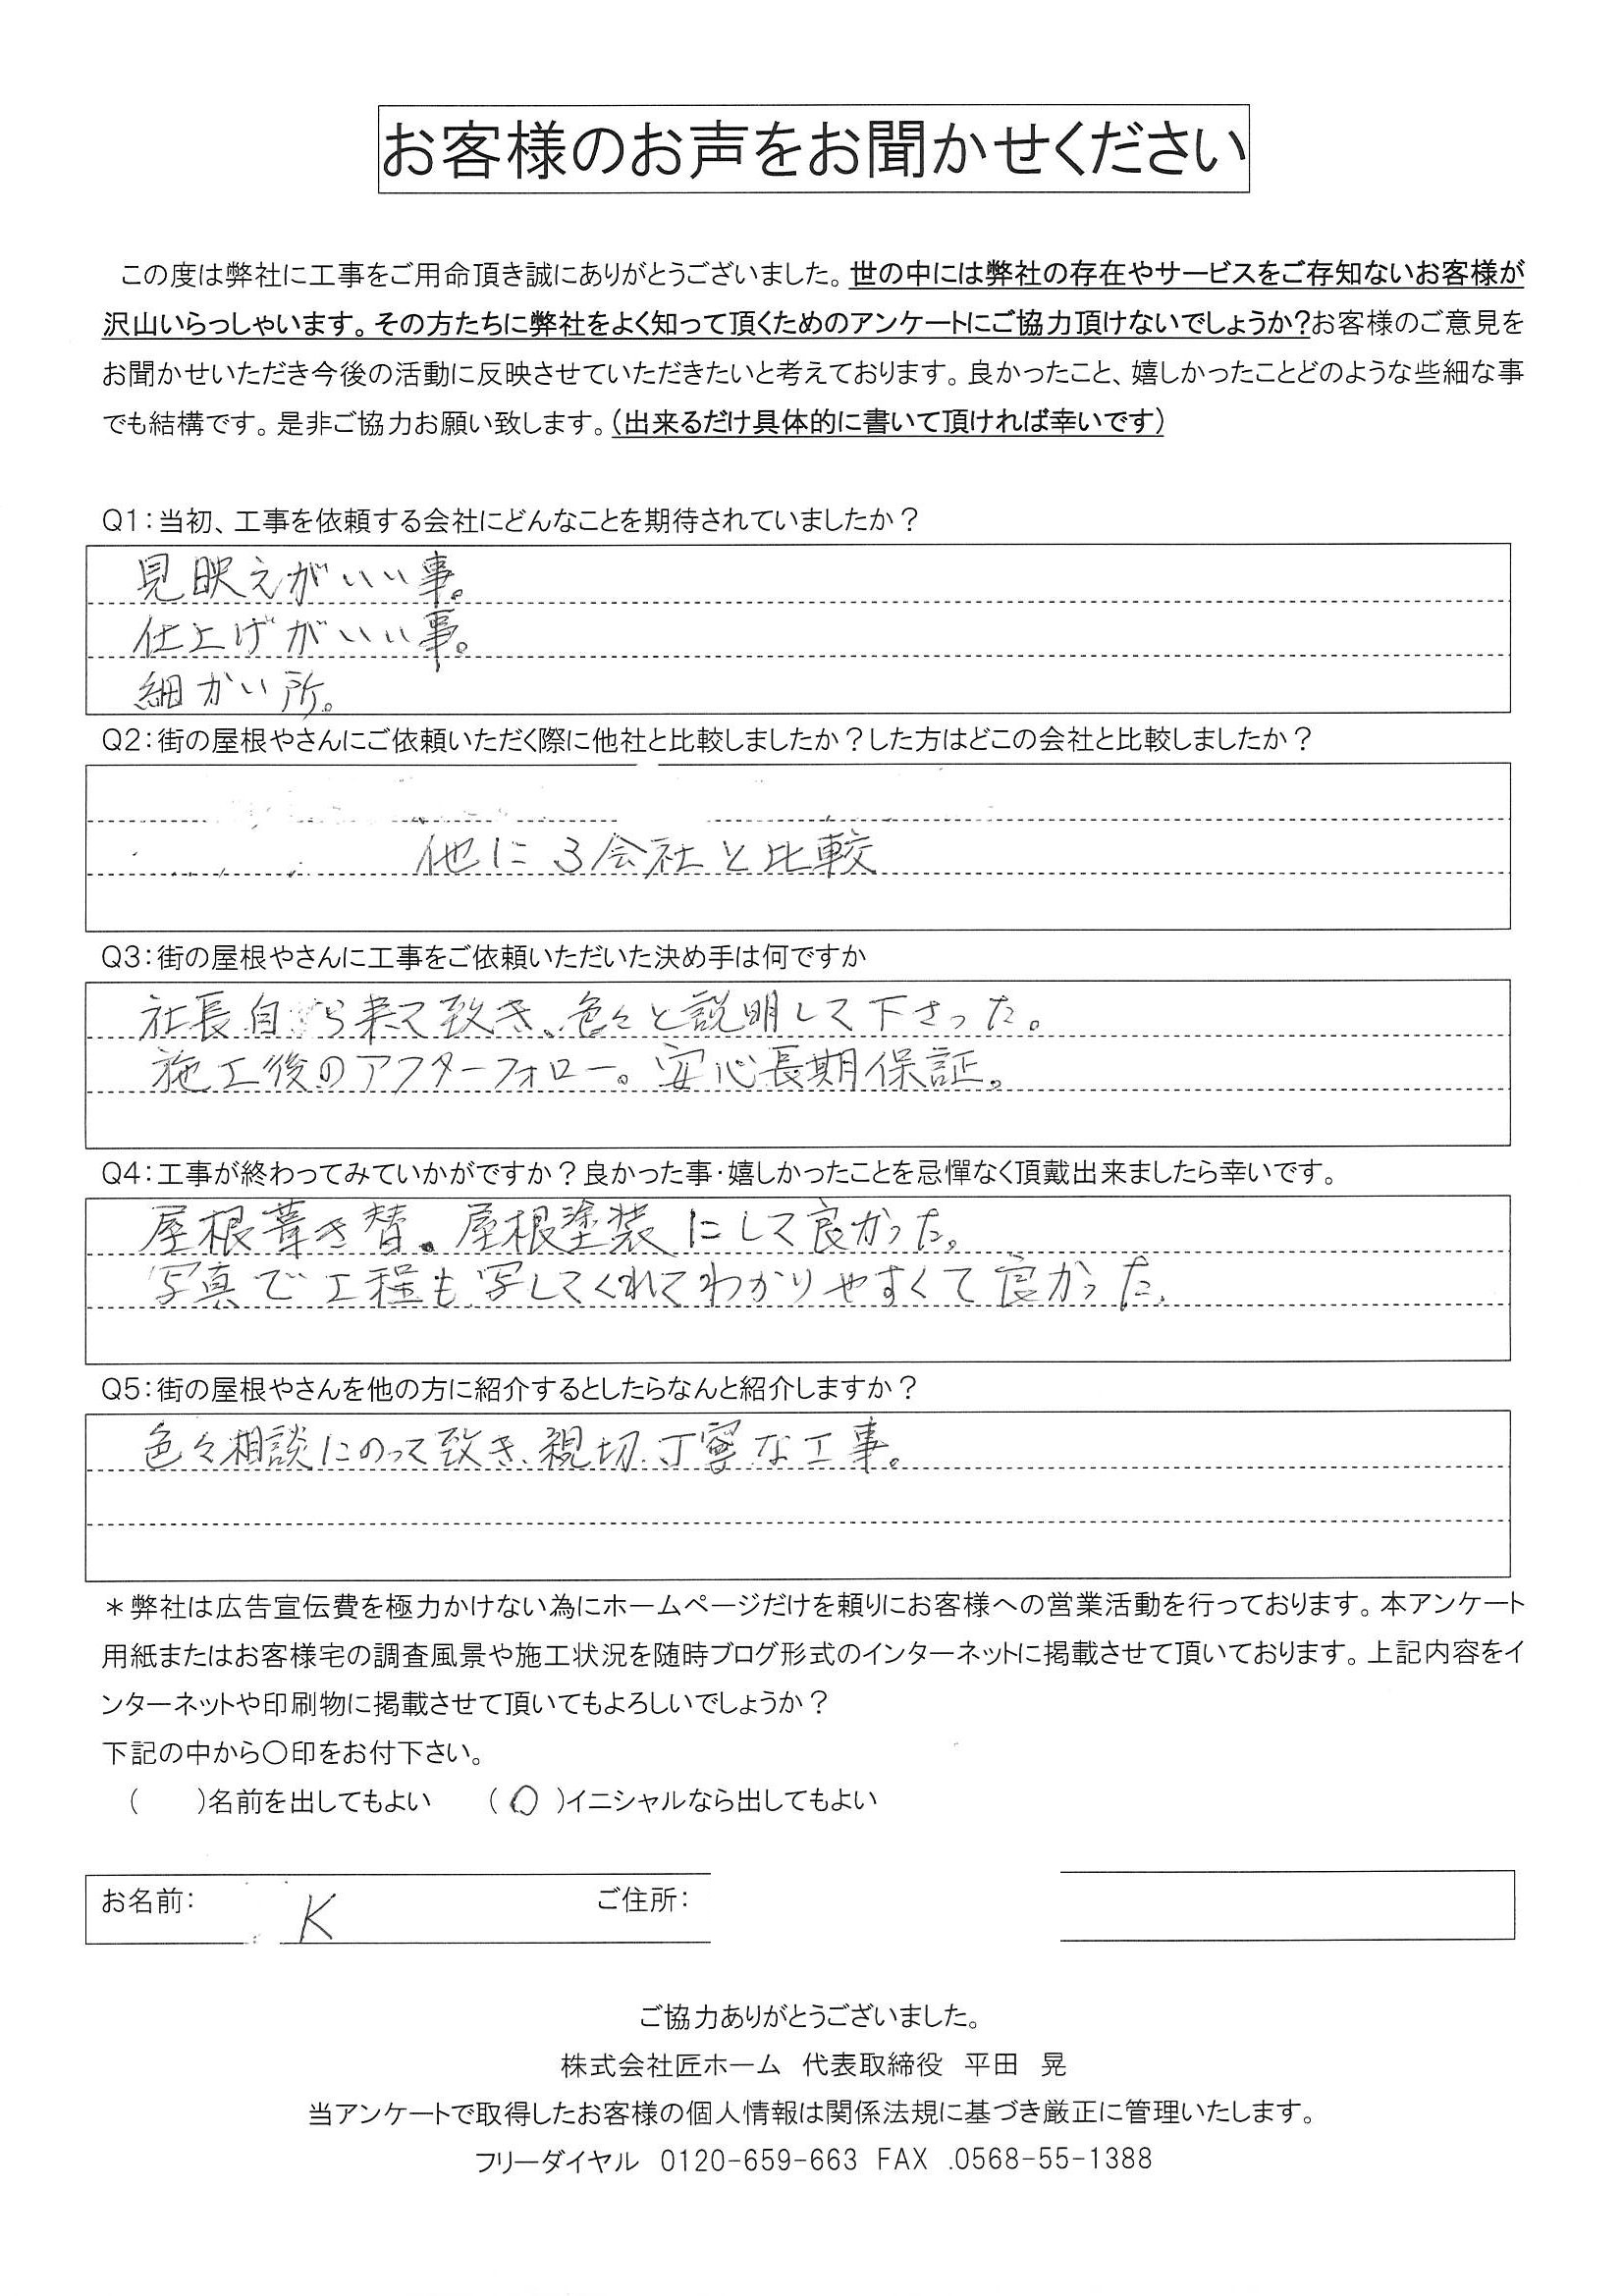 お客様のお声をお聞かせください
この度は弊社に工事をご用命頂き誠にありがとうございました。世の中には弊社の存在やサービスをご存知ないお客様が
沢山いらっしゃいます。その方たちに弊社をよく知って頂くためのアンケートにご協力頂けないでしょうか?お客様のご意見を
お聞かせいただき今後の活動に反映させていただきたいと考えております。良かったこと、嬉しかったことどのような些細な事
でも結構です。是非ご協力お願い致します。(出来るだけ具体的に書いて頂ければ幸いです)
Q1:当初、工事を依頼する会社にどんなことを期待されていましたか?
見映えがいい事。
仕上げがいい事。
細かい所。
Q2:街の屋根やさんにご依頼いただく際に他社と比較しましたか?した方はどこの会社と比較しましたか?
他に3会社と比較
Q3:街の屋根やさんに工事をご依頼いただいた決め手は何ですか
社長自ら来て致き、色々と説明して下さった。
施工後のアフターフォロー。安心長期保証。
Q4:工事が終わってみていかがですか?良かった事・嬉しかったことを忌憚なく頂戴出来ましたら幸いです。
屋根葺き替。屋根塗装にして良かった。
写真で工程も写してくれてわかりやすくて良かった。
Q5:街の屋根やさんを他の方に紹介するとしたらなんと紹介しますか?
色々相談にのって致き、親切、丁寧な工事。
*弊社は広告宣伝費を極力かけない為にホームページだけを頼りにお客様への営業活動を行っております。本アンケート
用紙またはお客様宅の調査風景や施工状況を随時ブログ形式のインターネットに掲載させて頂いております。上記内容をイ
ンターネットや印刷物に掲載させて頂いてもよろしいでしょうか?
下記の中から○印をお付下さい。
(　　)名前を出してもよい　　(○)イニシャルなら出してもよい
お名前:　K　ご住所:
ご協力ありがとうございました。
株式会社匠ホーム　代表取締役　平田　晃
当アンケートで取得したお客様の個人情報は関係法規に基づき厳正に管理いたします。
フリーダイヤル　0120-659-663　FAX　.0568-55-1388